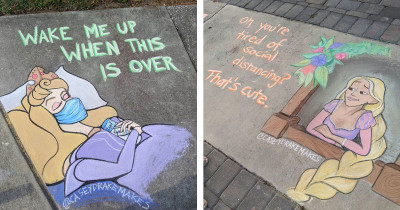 WAKE ME UP
WHEN THIS
IS OVER
@CASEYDRAKEMAKES
Oh, you're
tired of
social
distancing?
That's cute.
@CASEYDRAKEMAKES